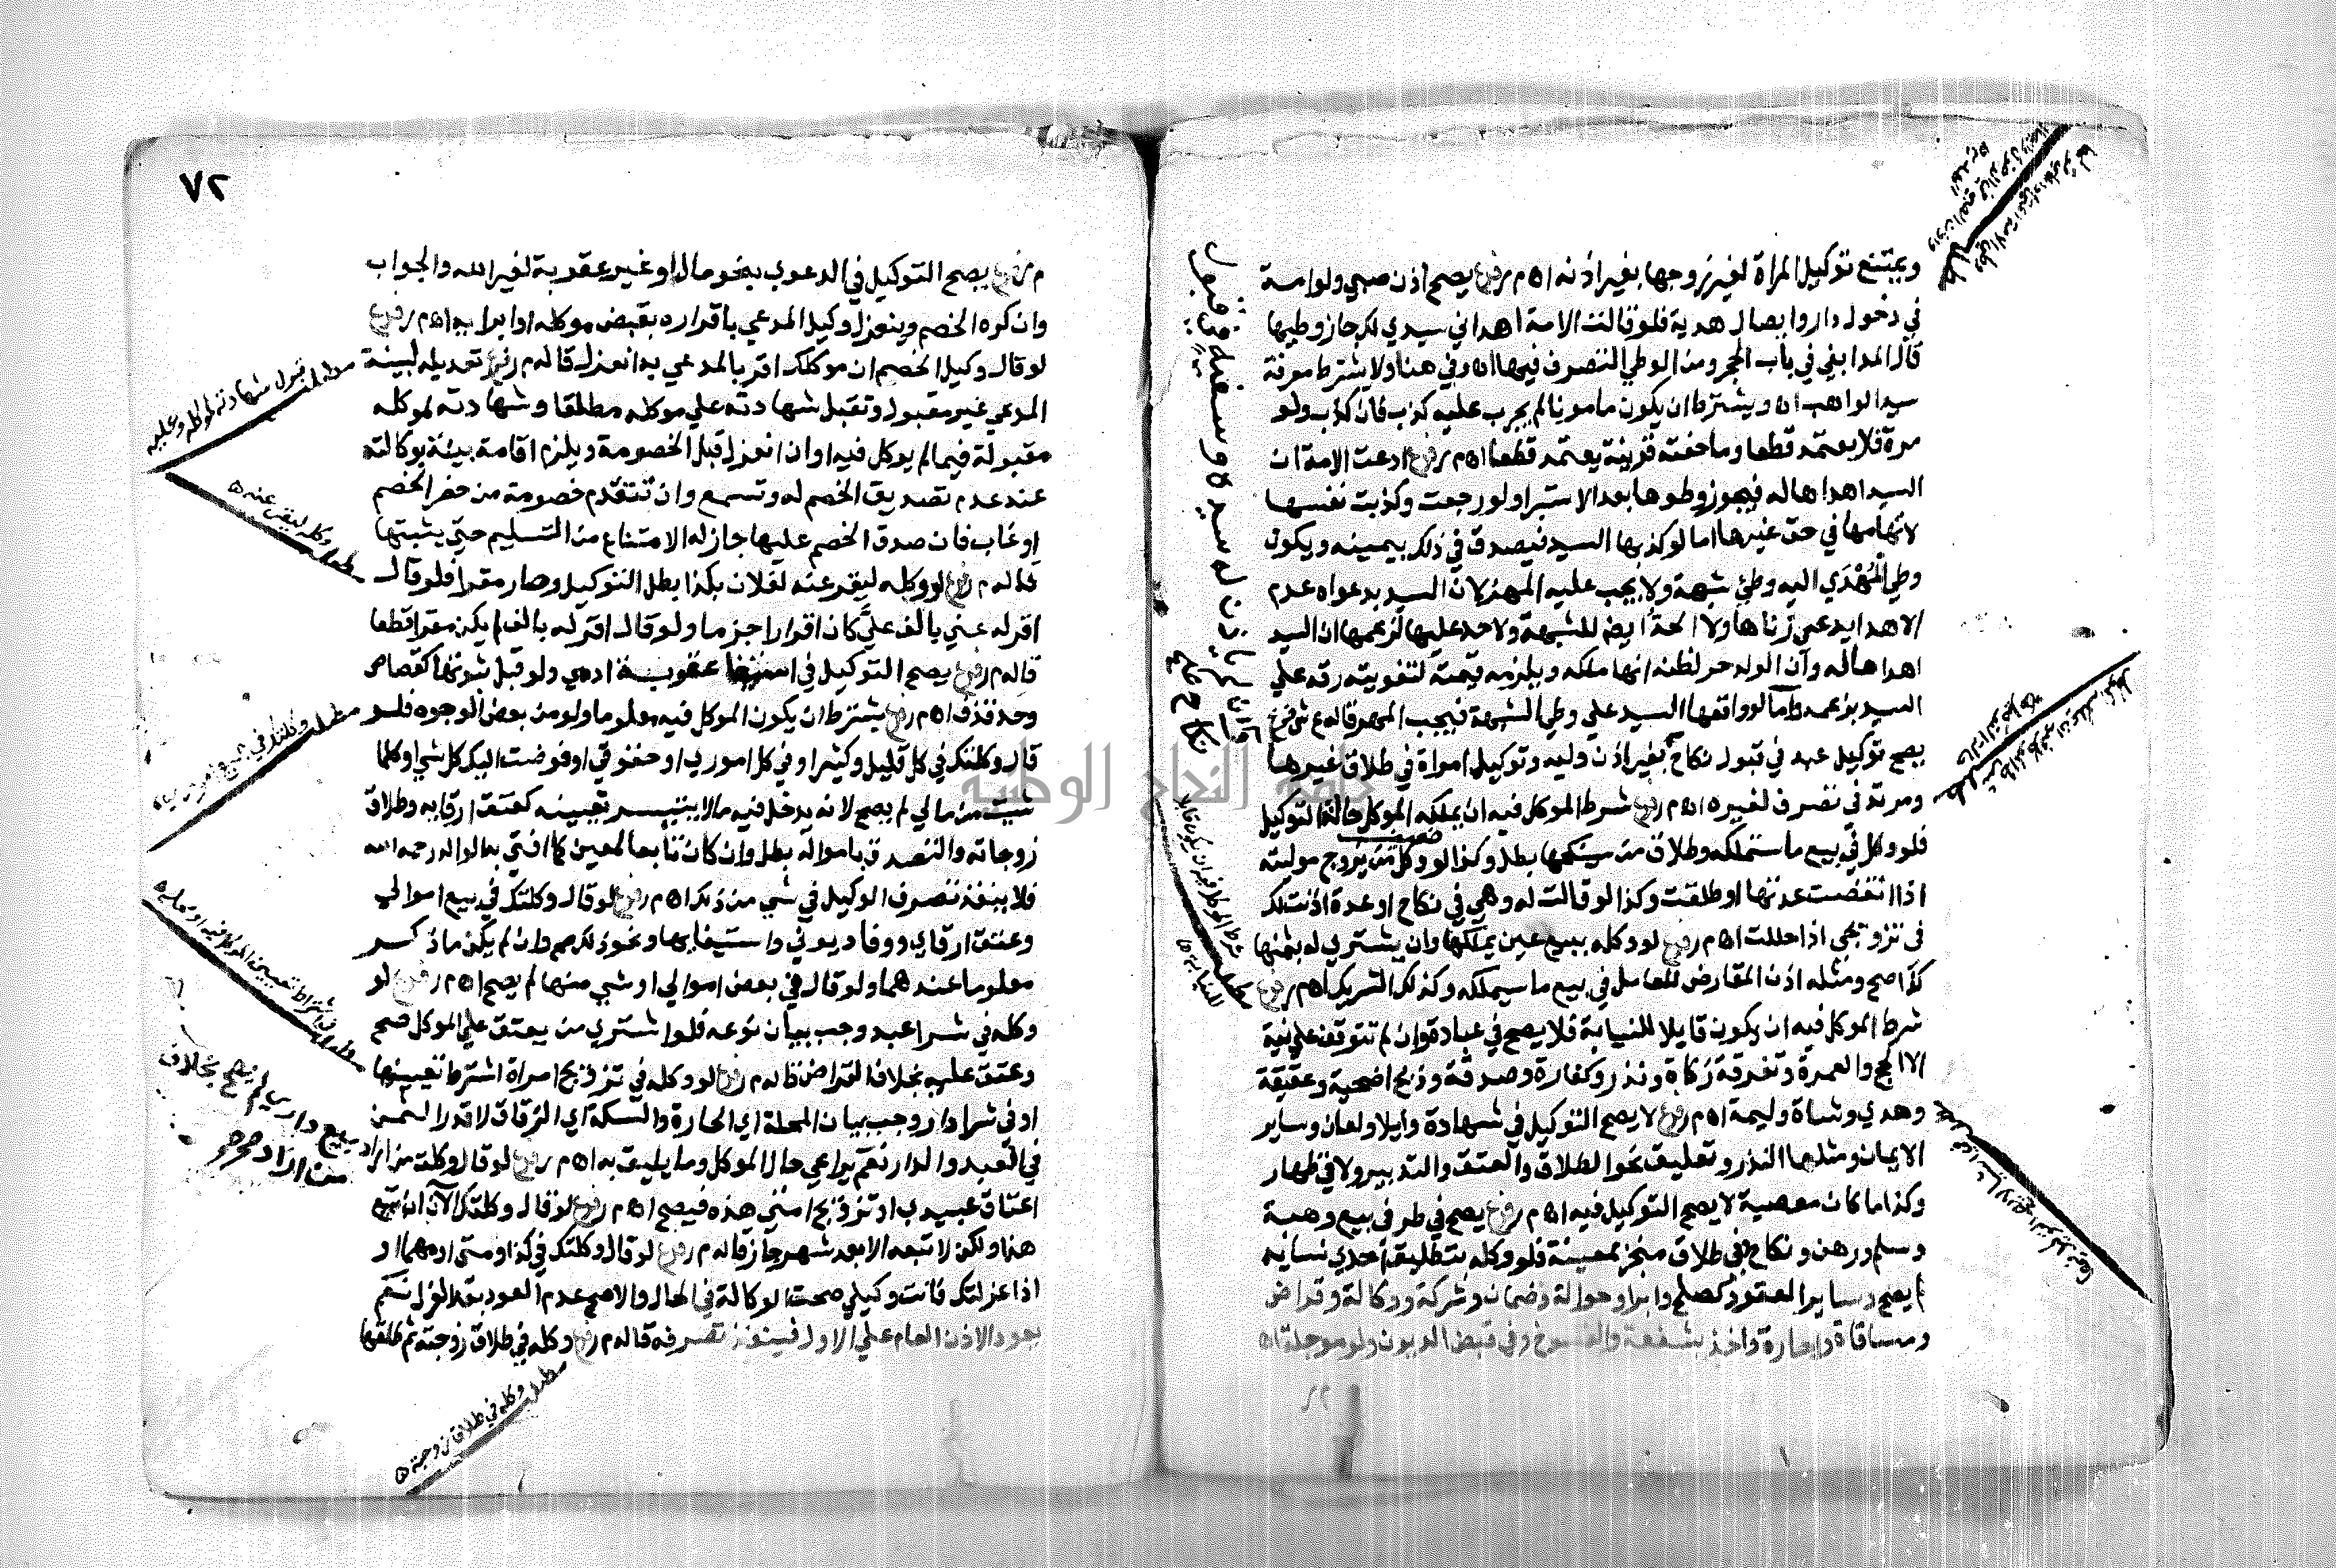 ويمتنع توكيل المراة لغير زوجها بغير اذنه اه م ر فرع يصح اذن صبي ولو امة
في دخول دار وايصال هدية فلو قالت الامة اهداني سيدي لك جاز وطيها
قال المدابغي في باب الحجر ومن الوطي التصرف فيها اه وفي هنا ولا يشترط معرفة
سيد الواهب اه ويشترط ان يكون مامونا لم يجرب عليه كذب فان كذب ولو
مرة فلا يعتمد قطعا وما حفته قرينة يعتمد قطعا اه م ر فرع ادعت الامة ان
السيد اهداها له فيجوز وطوها بعد الاستبرا ولو رجعت وكذبت نفسها
لاتهامها في حق غيرها اما لو كذبها السيد فيصدق في ذلك بيمينه ويكون
وطي المُهْدَي اليه وطئ شبهة ولا يجب عليه المهر لان السيد بدعواه عدم
الاهدا يدعي زناها ولا الحد ايضا للشبهة ولا حد عليها لزعمها ان السيد
اهداها له وان الولد حر لظنه انها ملكه ويلزمه قيمته لتفويته رقه علي
السيد بزعمه واما لو وافقها السيد علي وطي الشبهة فيجب المهر قاله ع ش فرع
يصح توكيل عبد في قبول نكاح بغير اذن وليه وتوكيل امراة في طلاق غيرها
ومرتد في تصرف لغيره اه م ر فرع شرط الموكل فيه ان يملكه الموكل حالة التوكيل
فلو وكل في بيع ما ستملكه وطلاق من سينكحها بطل وكذا لو وكل من يزوج موليته
اذا انقضت عدتها او طلقت وكذا لو قالت له وهي في نكاح او عدة اذنت لك
في تزويجي اذا حللت اه م ر فرع لو وكله ببيع عين يملكها وان يشتري له بثمنها
كذا صح ومثله اذن المقارض للعامل في بيع ما سيملكه وكذلك الشريك اه م ر فرع
شرط الموكل فيه ان يكون قابلا للنيابة فلا يصح في عبادة وان لم تتوقف علي نية
الا الحج والعمرة وتفرقة زكاة ونذر وكفارة وصدقة وذبح اضحية وعقيقة
وهدي وشاة وليمة اه م ر فرع لا يصح التوكيل في شهادة وايلا ولعان وساير
الايمان ومثلها النذر وتعليق نحو الطلاق والعتق والتدبير ولا في ظهار
وكذا ما كان معصية لا يصح التوكيل فيه اه م ر فرع يصح في طرفي بيع وهبة
وسلم ورهن ونكاح وفي طلاق منجز لمعينة فلو وكله بتطليق احدي نسايه
لم يصح وساير العقود كصلح وابرا وحوالة وضمان وشركة ووكالة وقراض
ومساقاة واجارة واخذ بشفعة والفسوخ وفي قبض الديون ولو موجلة اه
نكاح
٧٢
م ر فرع يصح التوكيل في الدعوي بنحو مال او غير عقوبة لغير الله والجواب
وان كره الخصم وينعزل وكيل المدعي باقراره بقبض موكله او ابرايه اه م ر فرع
لو قال وكيل الخصم ان موكلك اقر بالمدعي به انعزل قاله م ر فرع تعديله لبينة
المدعي غير مقبول وتقبل شهادته علي موكله مطلقا وشهادته لموكله
مقبولة فيما لم يوكل فيه او ان انعزل قبل الخصومة ويلزم اقامة بينة بوكالته
عند عدم تصديق الخصم له وتسمع وان تتقدم خصومة من حضر الخصم
او غاب فان صدق الخصم عليها جاز له الامتناع من التسليم حتي يثبتها
قاله م ر فرع لو وكله ليقر عنه لفلان بكذا بطل التوكيل وصار مقرا فلو قال
اقر له عني بالف عليَّ كان اقرارا جزما ولو قال اقر له بالف لم يكن مقرا قطعا
قاله م ر فرع يصح التوكيل في استيفا عقوبة ادمي ولو قبل ثبوتها كقصاص
وحد قذف اه م ر فرع يشترط ان يكون الموكل فيه معلوما ولو من بعض الوجوه فلو
قال وكلتك في كل قليل وكثير او في كل اموري او حقوقي او فوضت اليك كل شي او كلما
شيت من مالي لم يصح لانه يدخل فيه ما لا يتيسر تعيينه كعتق ارقايه وطلاق
زوجاته والتصدق بامواله بطل وان كان تابعا لمعين كما افتي به الواله رحمه الله
فلا ينفذ تصرف الوكيل في شي من ذلك اه م ر فرع لو قال وكلتك في بيع اموالي
وعتق ارقاي ووفا ديوني واستيفايها ونحو ذلك صح وان لم يكن ما ذكر
معلوما عندهما ولو قال في بعض اموالي او شي منها لم يصح اه م ر فرع لو
وكله في شرا عبد وجب بيان نوعه فلو اشتري من يعتق علي الموكل صح
وعتق عليه بخلاف القراض قاله م ر فرع لو وكله في تزويج امراة اشترط تعيينها
او في شرا دار وجب بيان المحلة اي الحارة والسكة اي الزقاق لا قدر الثمن
في العبد والدار نعم يراعي حال الموكل وما يليق به اه م ر فرع لو قال وكلت من اراد
اعتاق عبيدي او تزويج امتي هذه فيصح اه م ر فرع لو قال وكلتك الآن ان تبيع
هذا ولكن لا تبعه الا بعد شهر جاز قاله م ر فرع لو قال وكلتك في كذا ومتى او مهما او
اذا عزلتك فانت وكيلي صحت الوكالة في الحال والاصح عدم العود بعد العزل نعم
يعود الاذن العام علي الاول فينفذ تصرفه قاله م ر فرع وكله في طلاق زوجته ثم طلقها
مطلب قبول شهادته لموكله وعليه
مطلب وكله ليقر عنه ه
مطلب اشتراط تعيين الموكل فيه
بيع داري لم يصح بخلاف
من اراد
مطلب وكله في طلاق زوجته ه
جامعة النجاح الوطنية